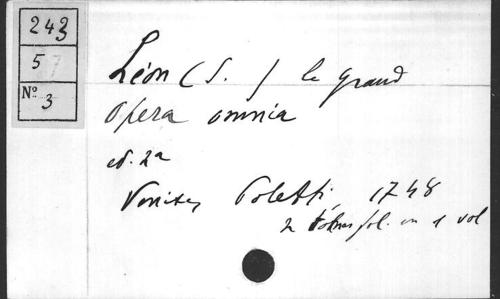 243
5 7
Nº 3
Léon (S.) le grand
Opera omnia
ed. 2a
Venises Poletti, 1748
2 tomes fol. en 1 vol